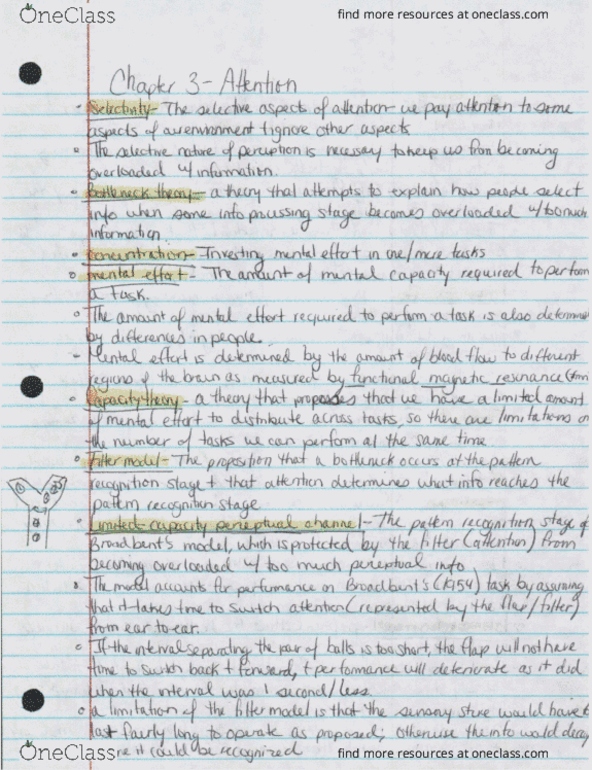 OneClass
find more resources at oneclass.com
Chapter 3 - Attention
Selectivity - The selective aspects of attention - we pay attention to some
aspects of our environment & ignore other aspects
The selective nature of perception is necessary to keep us from becoming
overloaded w/ information.
bottleneck theory - a theory that attempts to explain how people select
info when some info processing stage becomes overloaded w/ too much
information
concentration - Investing mental effort in one/more tasks
mental effort - The amount of mental capacity required to perform
a task.
The amount of mental effort required to perform a task is also determined
by differences in people.
- Mental effort is determined by the amount of blood flow to different
regions of the brain as measured by functional magnetic resonance
Capacity theory - a theory that proposes that we have a limited amount
of mental effort to distribute across tasks, so there are limitations on
the number of tasks we can perform at the same time
Filter model - The proposition that a bottleneck occurs at the pattern
recognition stage & that attention determines what info reaches the
pattern recognition stage
Limited-capacity perceptual channel - The pattern recognition stage of
Broadbent's model, which is protected by the filter (attention) from
becoming overloaded w/ too much perceptual info
The model accounts for performance on Broadbent's (1954) task by assuming
that it takes time to switch attention (represented by the flap/filter)
from ear to ear.
If the interval separating the pair of balls is too short, the flap will not have
time to switch back & forward, & performance will deteriorate as it did
when the interval was 1 second/less
a limitation of the filter model is that the sensory store would have to
last fairly long to operate as proposed; otherwise the info would decay
re it could be recognized
OneClass
find more resources at oneclass.com